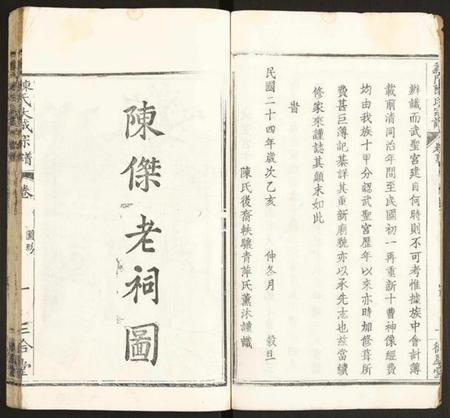 辦議而武聖宮建自何時則不可考惟據族中會計簿
載前清同治年間至民國初一再重新十曹神像經費
均由我族十甲分認武聖宮歷年以來亦時加修葺所
費甚巨薄記綦詳其重新廟貌亦以承先志也茲當續
修家來謹誌其顛末如此
旹
民國二十四年歲次乙亥 仲冬月 穀旦
陳氏後裔軼驤青萍氏薰沐謹識
陳傑老祠圖
陳氏大成宗譜
卷
圖
一
三